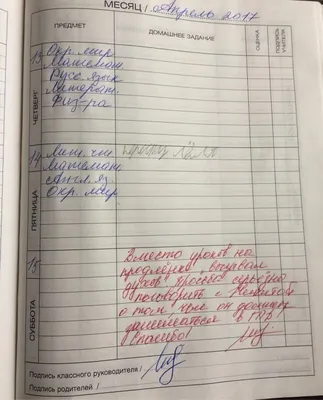 МЕСЯЦ / Апрель 2017
ПРЕДМЕТ
ДОМАШНЕЕ ЗАДАНИЕ
ОЦЕНКА
ПОДПИСЬ УЧИТЕЛЯ
ЧЕТВЕРГ
13
Окр. мир
Математ.
Русс. язык
Литерат.
Физ-ра
ПЯТНИЦА
14
Лит. чт.
Математ.
англ. яз
Окр. мир.
СУББОТА
15
Вместо уроков на
продлёнке вызывал
духов. Просьба серьёзно
поговорить с
о том, чем он должен
заниматься в ГПР
Спасибо!
Подпись классного руководителя /
Подпись родителей /